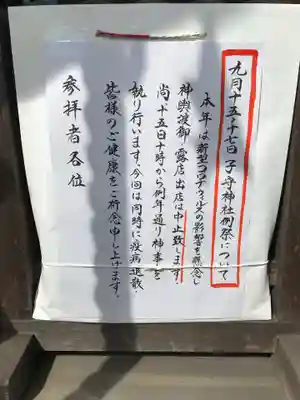 九月十五・十七日子守神社例祭について
本年は新型コロナウィルスの影響を懸念し
神輿渡御・露店出店は中止致します。
尚、十五日十時から例年通り神事を
執り行います。今回は同時に疫病退散・
皆様のご健康をご祈念申し上げます。
参拝者各位